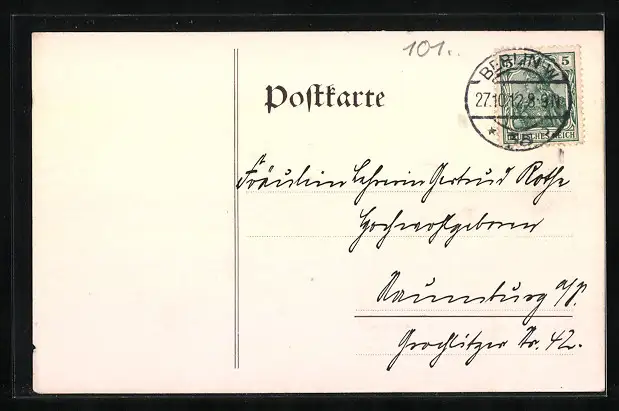 101.
BERLIN W
5
27.10.12.8-9N.
DEUTSCHES REICH
Postkarte
Fräulein Lehrerin Gertrud Rothe
Hochwohlgeboren
Naumburg a/S.
Grochlitzer Str. 42.